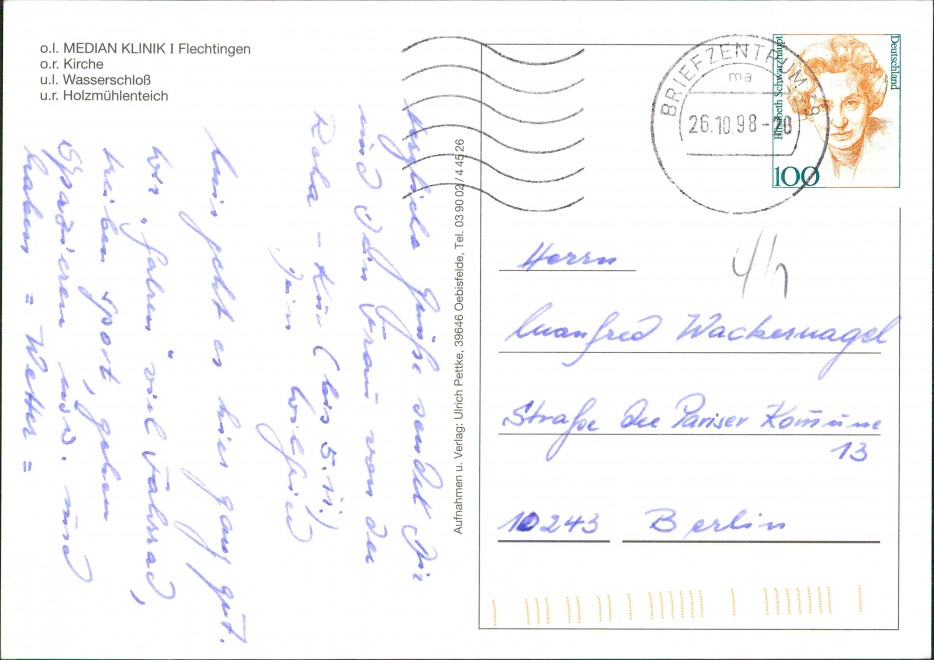 o.l. MEDIAN KLINIK I Flechtingen
o.r. Kirche
u.l. Wasserschloß
u.r. Holzmühlenteich
Herzliche Grüße sendet Dir
und Frau von der
Reha - Kur (bis 5.11.)
Dein Wilfried
Mir geht es hier ganz gut.
Wir fahren viel Fahrrad,
treiben Sport, gehen
Spazieren usw. und
haben = Wetter =
Aufnahmen u. Verlag: Ulrich Pettke, 39646 Oebisfelde, Tel. 03 90 02 / 4 45 26
BRIEFZENTRUM 39
ma
26.10.98-20
Elisabeth Schwarzhaupt
Deutschland
100
Herrn
Manfred Wackernagel
Straße der Pariser Kommune
13
10243 Berlin